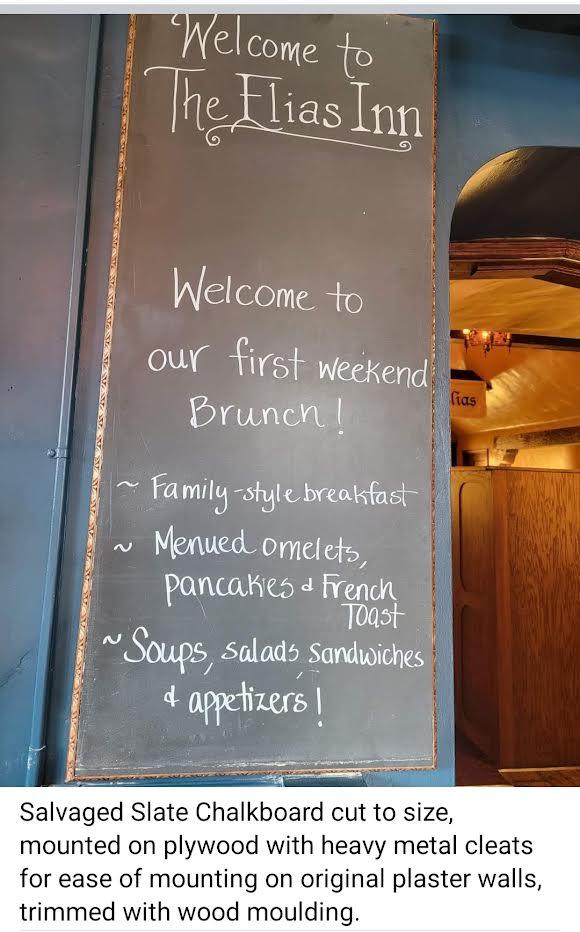 Welcome to
The Elias Inn
Welcome to
our first weekend
Brunch!
~ Family-style breakfast
~ Menued omelets,
pancakes & French
Toast
~ Soups, salads, sandwiches
& appetizers!
lias
Salvaged Slate Chalkboard cut to size,
mounted on plywood with heavy metal cleats
for ease of mounting on original plaster walls,
trimmed with wood moulding.